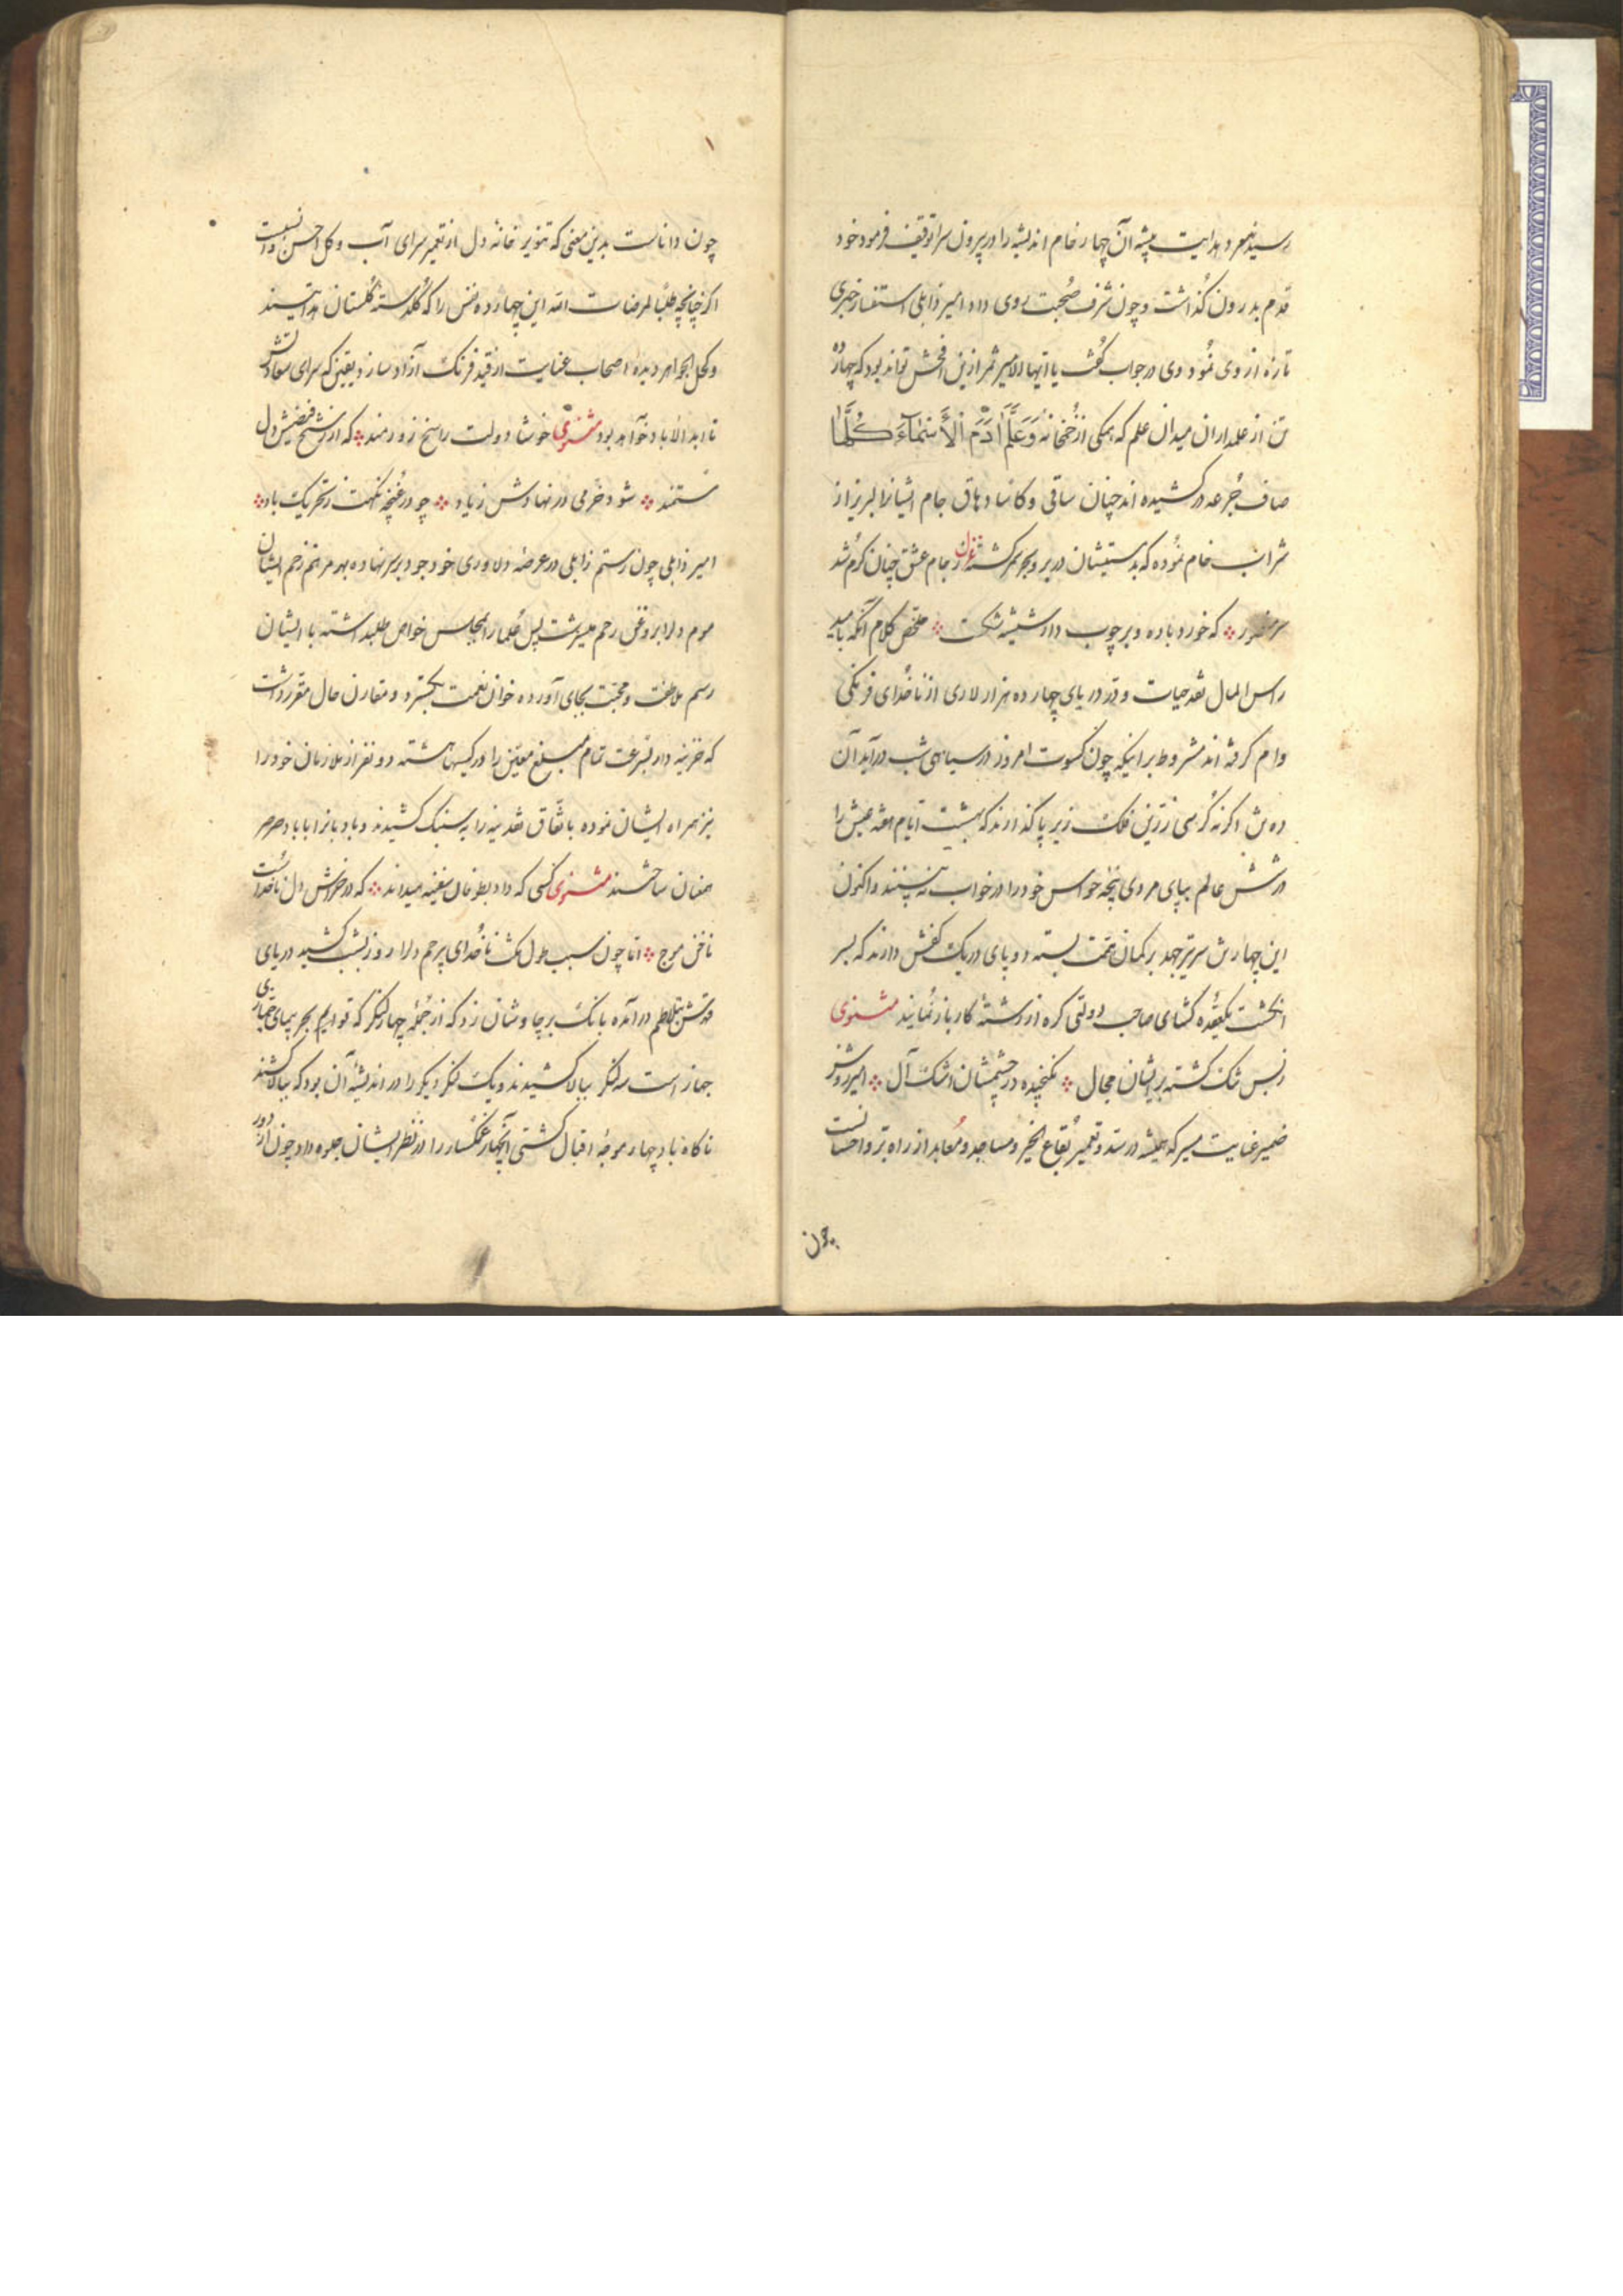 رسیدند مرد هدایت پیشه آن چهار خام اندیشه را در بیرون سرا توقیف فرمود خود
قدم بدرون گذاشت و چون شرف صُحبت روی داد امیر زابلی استفسار خبری
تازه از وی نمُود وی در جواب گفت یا ایها الامیر خبر ازین افحش تواند بود که چهارده
تن از علمداران میدان علم که همکی از خُمخانهٔ وَعَلَّمَ اٰدَمَ الْأَسْمَاءَ كُلَّهَا
صاف جُرعه درکشیده اند چنان ساقی وکاسا دهاق جام ایشانرا لبریز از
شراب خام نمُوده که بدمستیشان در بر و بحر سمر گشته غزل ز جام عشق چنان گرم شد
سر منصور که خورد باده و بر چوب دار شیشه شکست ملخص کلام آنکه بامید
راس المال نقد حیات وقدر دریای چهارده هزار لاری از ناخُدای فرنگی
وام گرفته اند مشروط بر اینکه چون کسوت امروز در سیاهی شب درآید آن
ده تن اگر نه کُرسی زرّین فلک زیر پا گذارند که هشت ایام هفته عیش را
در شش عالم بپای مردی پنجه حواس خود را در خواب نه بینند و اکنون
این چهار تن سر تیر جهد بر کمان همّت بسته دو پای در یک کفش دارند که بسر
انگشت یکعُقده گشای صاحب دولتی گره از رشتهٔ کار باز نمُایند مثنوی
ز بس تنک گشته بر ایشان مجال نگنجیده در چشمشان اشک آل امیر روشن
ضمیر غایت میر که همیشه در سدّ و تعمیر بُقاع الخیر و مساجد و مُعابد از راه برّ و احسانست
چون
چون داناست بدین معنی که تنویر خانه دل از تعمیر سرای آب و گل احسن و انسبست
اگر چنانچه طلبًا لمرضات الله این چهارده نفس را که گُلدسته گُلستان هدایتیند
و کحل الجواهر دیدهٔ اصحاب عنایت از قید فرنک آزاد سازد یقین که سرای سعادتش
تا ابد الاباد خوآهد بود مثنوی خوشا دولت راسخ زورمند که از رشح فیضش دل
مستمند شود خرمی در نهادش زیاد چو در غنچه نکهت ز تحریک باد
امیر زابلی چون رستم زابلی در عرصهٔ دلاوری خود جود بر سر نهاده بهر مرهم زخم ایشان
موم دلرا بروغن رحم میسرشت پس عُلما را بمجلس خواص طلبداشته با ایشان
رسم ملاطفت و محبّت بجای آورده خوان نعمت بگسترد و مقارن حال مقرر داشت
که خزینه دار بسرعت تمام مبلغ معیّن را در کیسها هشته دو نفر از ملازمان خود را
نیز همراه ایشان نموده باتّفاق نقدینه را به سنبک کشیدند و بادبانرا با باد صرصر
همعنان ساختند مثنوی کسی که داد بطوفان سفینه میداند که در خراش دل ناخداست
ناخن موج امّا چون بسبب طول مکث ناخُدای پرحم دلرا روز بشب کشید دریای
قهرش بتلاطم درآمده بانک بر چاوشان زد که از جُمله چهار لنگر که قوایم بحر پیمای جهان
جهاز است سه لنگر ببالا کشیدند و یک لنگر دیگر را در اندیشهٔ آن بود که ببالا کشند
ناگاه باد چهار موجهٔ اقبال کشتی آنچهار غمگسار را در نظر ایشان جلوه داد چون از دور